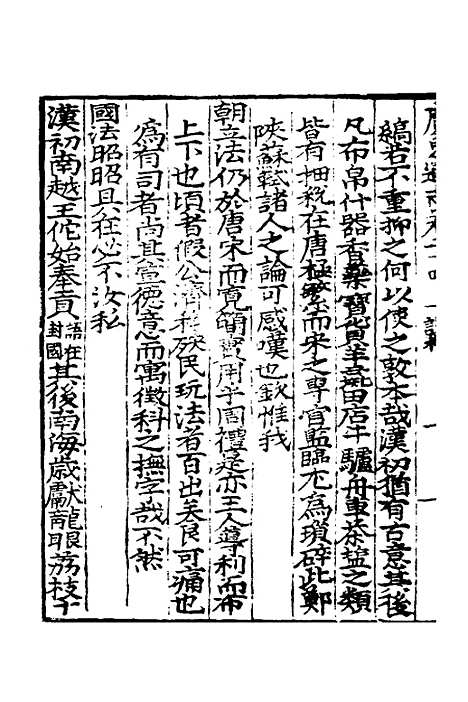 縞若不重抑之何以使之敦本哉漢初猶有古意其後
凡布帛什器香藥寶貨羊彘田店牛驢舟車茶塩之類
皆有抽稅在唐極繁而宋之專官監臨尤為瑣碎此鄭
陜蘇軾諸人之論可感嘆也欽惟我
朝立法仍於唐宋而寬簡實用乎周禮是亦王人導利而布
上下也頃者假公濟私殃民玩法者百出矣良可痛也
為有司者尚其宣德意而寓徵科之撫字哉不然
國法昭昭具在必不汝私
漢初南越王佗始奉貢語在封國其後南海歲獻龍眼荔枝十